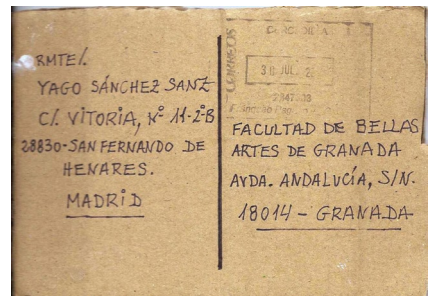 RMTE/.
YAGO SÁNCHEZ SANZ
C/. VITORIA, Nº 11-2ºB
28830-SAN FERNANDO DE
HENARES.
MADRID
CORREOS
30 JUL. 2
FACULTAD DE BELLAS
ARTES DE GRANADA
AVDA. ANDALUCÍA, S/N.
18014 - GRANADA